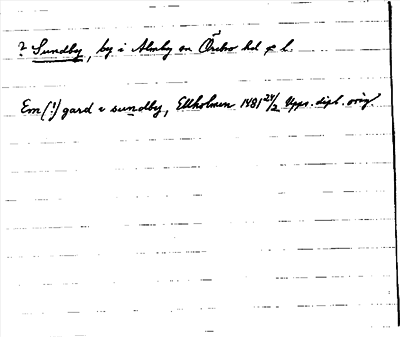 ? Sundby, by i Almby sn Örebro hd o l.
Em (!) gard i sundby, Ekholmen 1481 24/2 Upps. dipl. orig.